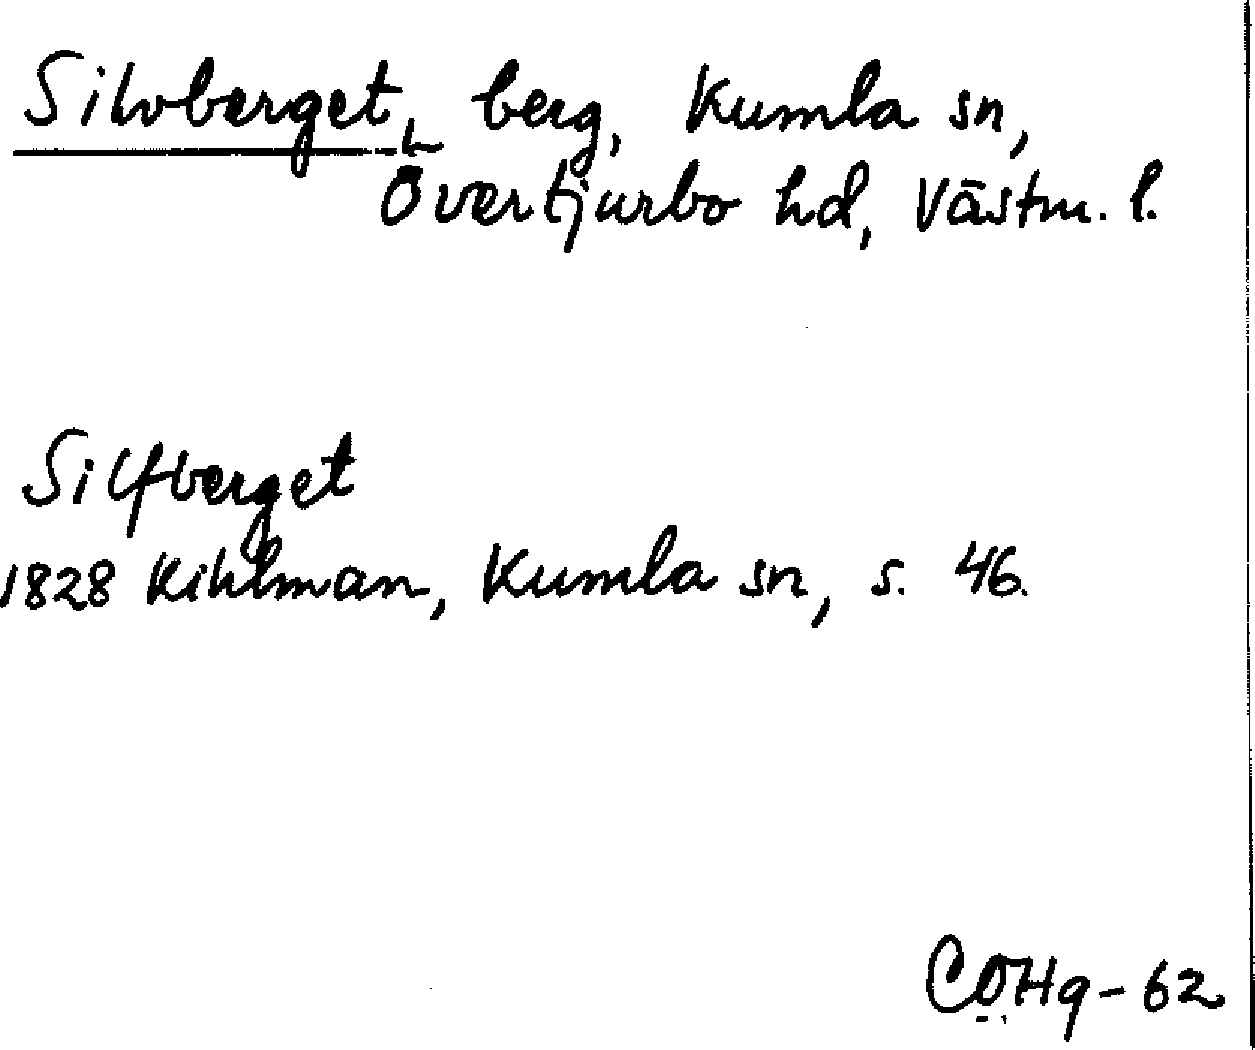 Silvberget, berg, Kumla sn,
Övertjurbo hd, Västm. l.
Silfberget
1828 Kihlman, Kumla sn, s. 46.
COHg-62